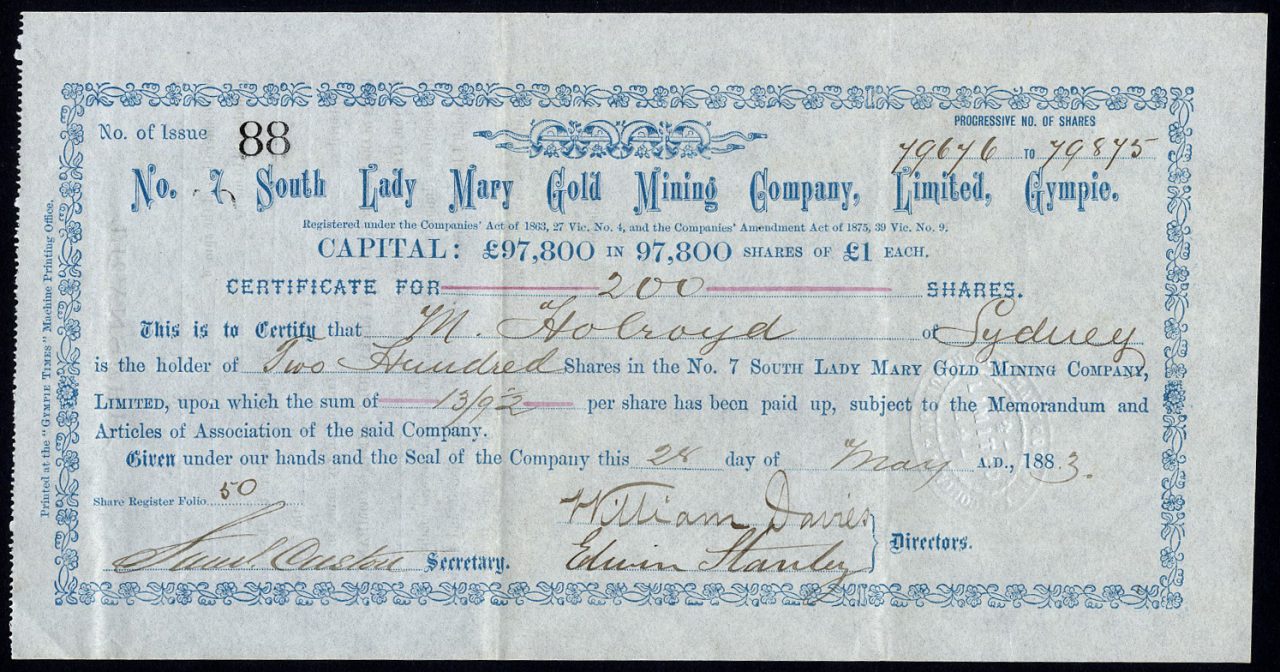 No. of Issue 88
PROGRESSIVE NO. OF SHARES
79676 TO 79875
No. 7 South Lady Mary Gold Mining Company, Limited, Gympie.
Registered under the Companies' Act of 1863, 27 Vic. No. 4, and the Companies' Amendment Act of 1875, 39 Vic. No. 9.
CAPITAL: £97,800 IN 97,800 SHARES OF £1 EACH.
CERTIFICATE FOR 200 SHARES.
This is to Certify that M. Holroyd of Sydney
is the holder of Two Hundred Shares in the No. 7 SOUTH LADY MARY GOLD MINING COMPANY,
LIMITED, upon which the sum of 13/9½ per share has been paid up, subject to the Memorandum and
Articles of Association of the said Company.
Given under our hands and the Seal of the Company this 28 day of May A.D., 1883.
Share Register Folio 50
William Davies
Edwin Stanley
Directors.
Secretary.
Printed at the "GYMPIE TIMES" Machine Printing Office.